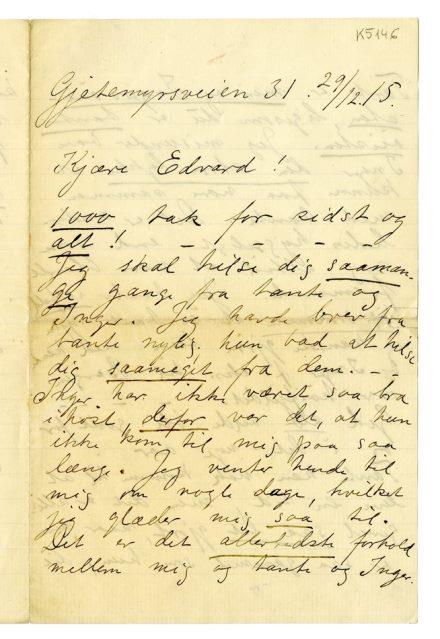 K5146
Gjetemyrsveien 31. 29/12.15.
Kjære Edvard!
1000 tak for sidst og
alt! — — — —
Jeg skal hilse dig saaman-
ge gange fra tante og
Inger. Jeg havde brev fra
tante nylig. hun bad at hilse
dig saameget fra dem. — —
Inger har ikke været saa bra
i høst, derfor var det, at hun
ikke kom til mig paa saa
længe. Jeg venter hende til
mig om nogle dage, hvilket
jeg glæder mig saa til.
Det er det allerbedste forhold
mellem mig og tante og Inger.